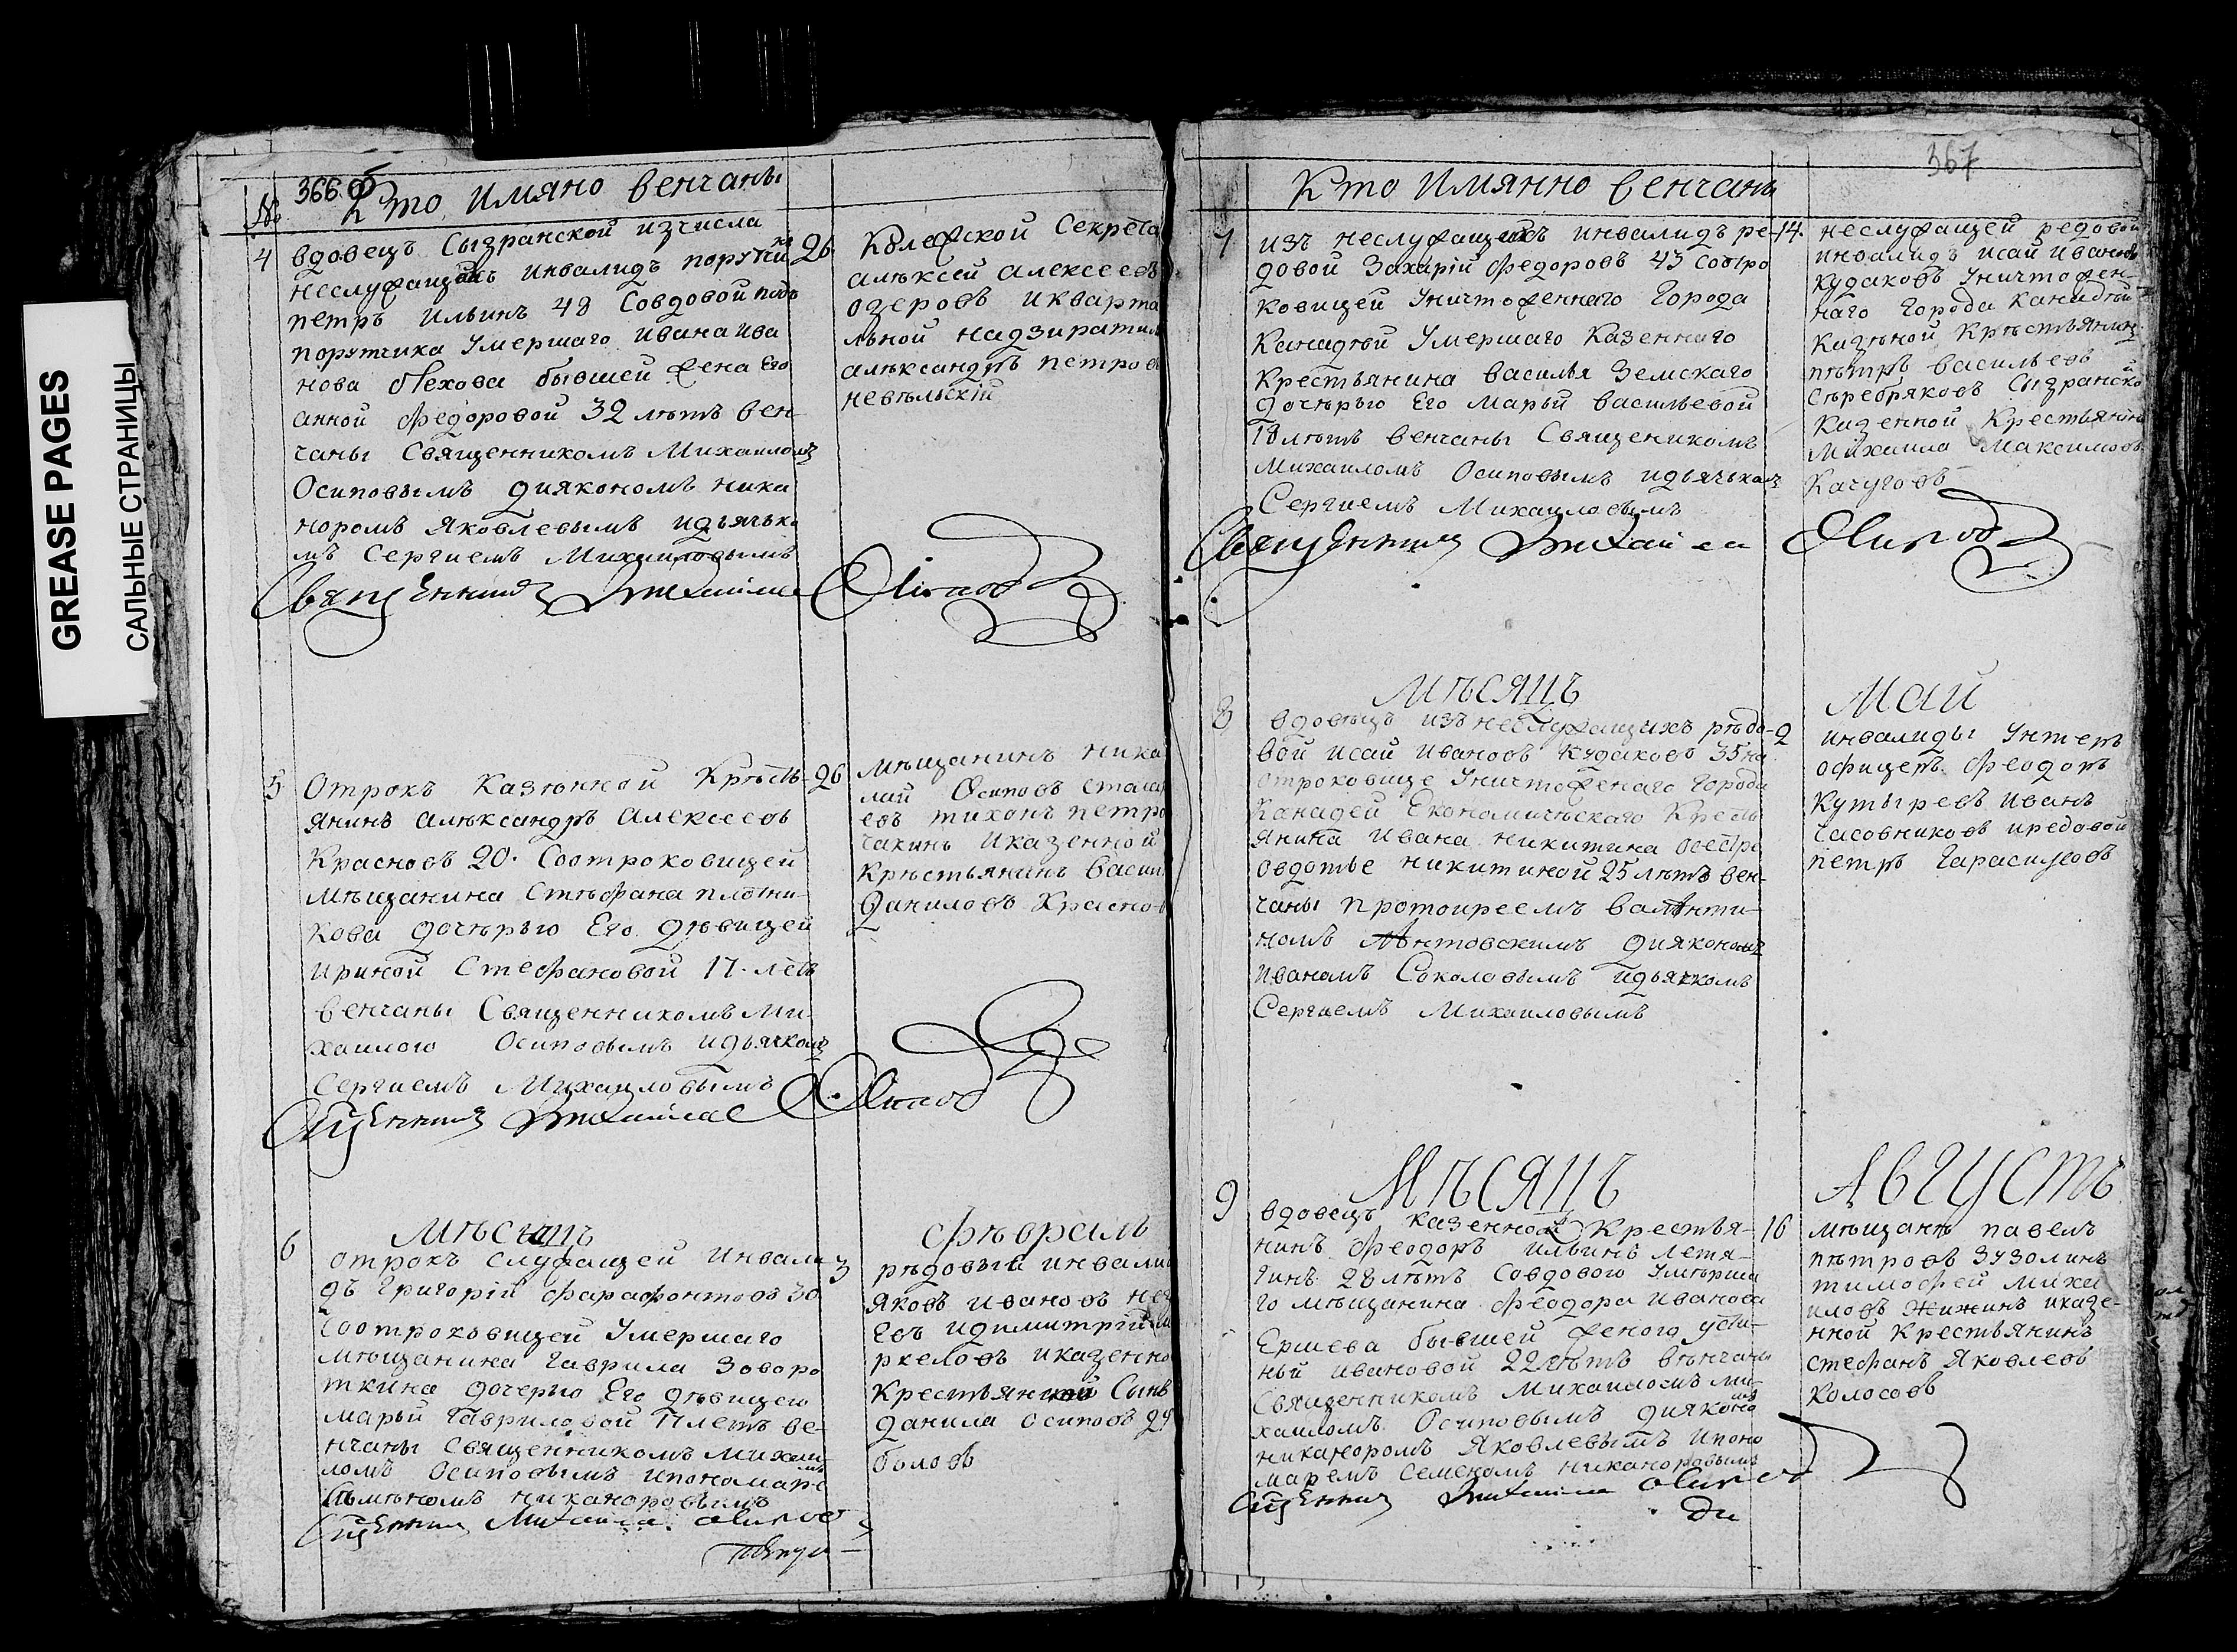 GREASE PAGES
САЛЬНЫЕ СТРАНИЦЫ
366 об
№
Кто имяно венчаны
4
вдовецъ Сызранской изчисла
неслужащихъ инвалидъ поручи
петръ Ильинъ 48 Совдовой подъ
порутчика Умершаго Ивана Ива
нова бывшей жена Его
анной Федоровой 32 лѣтъ вен-
чаны Священникомъ Михаиломъ
Осиповымъ диякономъ ника
норомъ Яковлевымъ идьячько
мъ Сергиемъ Михаиловымъ
26
Колежской Секрета
алѣксей алексеевъ
озеровъ икварта
льной надзирател
алѣксандръ петров
невѣльскій
Священникъ Михаила Осиповъ
5
Отрокъ Казѣнной Крѣсть-
янинъ алѣксандръ алексеевъ
Красновъ 20. Соотроковицей
мѣщанина Стѣфана плотни-
кова дочѣрью Его дѣвицей
ириной Стефановой 17. летъ
венчаны Священникомъ Ми
хаилого Осиповымъ идьячкомъ
Сергиемъ Михаиловымъ
26
мѣщанинъ Ника
лай Осиповъ
евъ тихонъ петро
чакинъ иказенной
Крѣстьянинъ Васил
Даниловъ Краснов
Сщенникъ Михаила Осиповъ
6
Мѣсяцъ
Февраль
отрокъ служащей инвали
дъ Григорій Фарафонтовъ 30
Соотроковицей Умершаго
мѣщанина Гаврила Заворо
ткина дочерью Его дѣвицею
марьй Гавриловой 17 летъ ве-
нчаны Священникомъ Михаи-
ломъ Осиповымъ ипономаре
Сѣмѣномъ никаноровымъ
3
рѣдовый инвали
Яковъ ивановъ
евъ идимитрій
ркеловъ иказенно
Крестьянкой Сынъ
данила осиповъ
боловъ
Сщенникъ Михаила Осиповъ
367
Кто Имянно венчаны
7
изъ неслужащихъ инвалидъ ре-
довой Захарій Федоровъ 43 Соотро
ковицей Уничтоженнаго Города
Канадей Умершаго Казеннаго
Крестьянина Василья Земскаго
дочѣрью Его Марьй Васильевой
18 лѣтъ венчаны Священикомъ
Михаиломъ Осиповымъ идьячькомъ
Сергиемъ Михаиловымъ
14.
неслужащей редовой
инвалидъ исай ивановъ
Кудаковъ Уничтожен-
наго Города Канадѣй
Казѣной Крѣстьянинъ
пѣтръ васильевъ
Сѣребряковъ Сызранской
Казенной Крестьянинъ
Михаила Максимовъ
Качуговъ
Священникъ Михаила Осиповъ
8
Мѣсяцъ
Май
вдовѣцъ изъ неслужащихъ рѣдо-
вой исай Ивановъ Кудаковъ 35 на
отроковице Уничтоженаго Города
Канадей Економичѣскаго Кресть
янина Ивана Никитина сестре
овдотье никитиной 25 лѣтъ вен-
чаны протоиреемъ Валѣнти-
номъ Лентовскимъ диякономъ
Иваномъ Соколовымъ идьячкомъ
Сергиемъ Михаиловымъ
2
инвалиды Унтеръ
офицеръ Феодоръ
Кутыревъ Иванъ
Часовниковъ иредовой
петръ Гарасимовъ
9
Мѣсяцъ
Августъ
вдовецъ казенной Крестья-
нинъ Феодоръ ильинъ летя-
гинъ 28 лѣтъ Совдового Умѣрша
го мѣщанина Феодора Иванова
Ершева бывшей женою усти-
ньй ивановой 22 лѣтъ вѣнчаны
Священникомъ Михаиломъ Ми-
хаиломъ Осиповымъ дияконо
мъ
никаноромъ Яковлевымъ ипоно
маремъ Семеномъ никаноровымъ
16
мѣщанѣ павелъ
пѣтровъ Зузолинъ
тимофей Миха
иловъ Жижинъ иказе-
нной Крестьянинъ
стефанъ Яковлевъ
Колосовъ
Сщенникъ Михаила Осиповъ
Ди